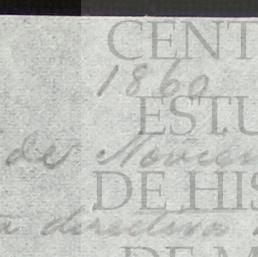 CENT
1860
ESTU
de Noviem
DE HIS
a directiva
DE M